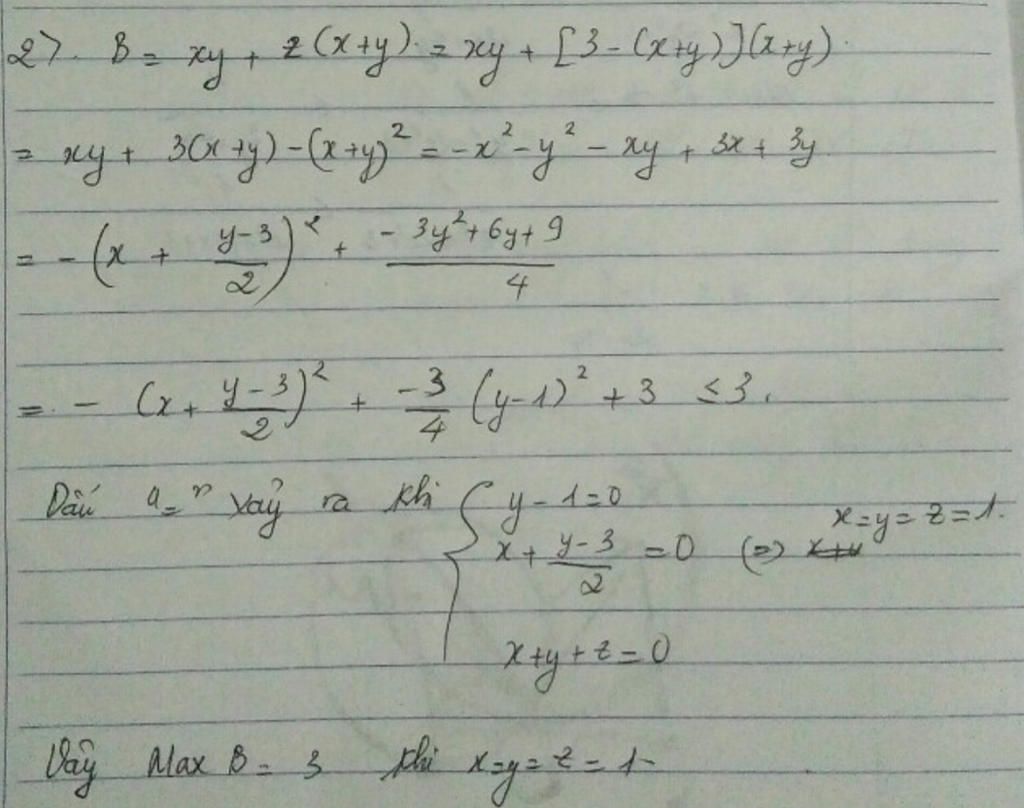 2>. B = xy + z(x+y) = xy + [3 - (x+y)](x+y).
= xy + 3(x+y) - (x+y)² = -x² - y² - xy + 3x + 3y
= - (x + (y-3)/2)² + (-3y² + 6y + 9)/4
= - (x + (y-3)/2)² + (-3)/4 (y-1)² + 3 ≤ 3.
Dấu "=" xảy ra khi { y - 1 = 0
x + (y-3)/2 = 0 (=) x = y = z = 1.
x + y + z = 0
Vậy Max B = 3 khi x = y = z = 1-